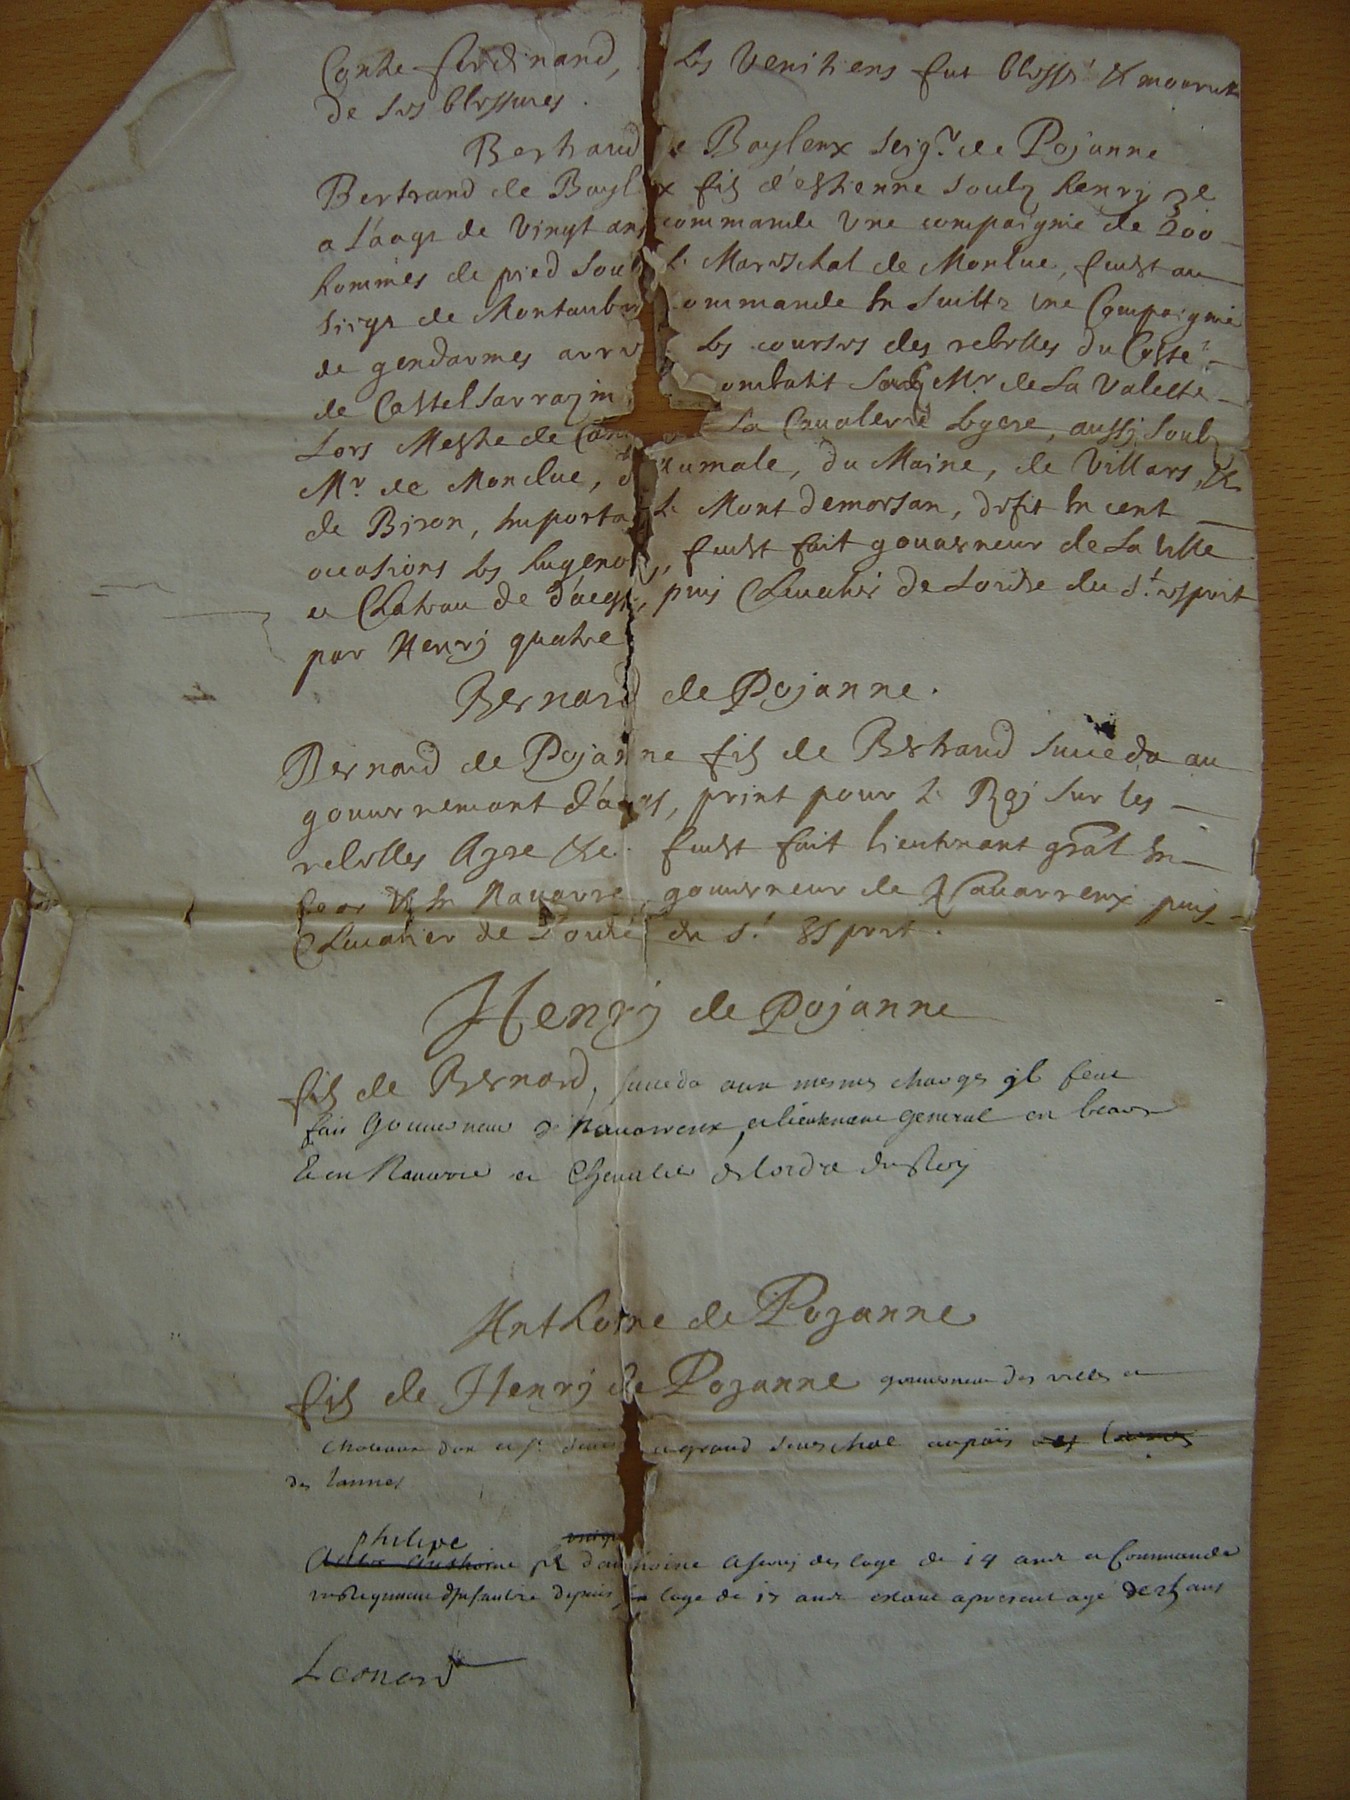 Contre ferdinand, les Venitiens fut blessé & mourut
de ses blessures.
Bertrand de Baylenx seigr. de Pojanne
Bertrand de Bayl x fils d'estienne soulz henry 3e
a l'aage de vingt ans commande une compaignie de 200
hommes de pied soulz le Mareschal de Monluc, feust au
siege de Montauban commande en suitte une Compaignie
de gendarmes les courses des rebelles du Costé
de Castelsarrazin ombatit soubz Mr. de La Valette
Lors Mestre de Cam La Cavalerie legere, aussi soulz
Mr. de Monluc, d umale, du Maine, de Villars, &
de Biron, emporta le Mont demorsan, defit en cent
occasions les hugenots, feust fait gouverneur de la ville
et Chateau de d'acqs, puis Chevalier de Lordre du St. esprit
par Henry quatre
Bernard de Pojanne.
Bernard de Pojanne fils de Bertrand succeda au
gouvernemant d'acqs, print pour le Roy sur les
rebelles Ayre &c. feust fait lieutenant gnal en
bear & en Navarre, gouverneur de Navarrenx puis
Chevalier de Lordre du St. Esprit.
Henry de Pojanne
fils de Bernard, succeda aux mesmes charges il feut
fait Gouverneur de Navarrenx, et lieutenant general en bearn
& en Navarre et Chevalier de lordre du Roy
Anthoine de Pojanne
fils de Henry de Pojanne gouverneur des villes et
chateaux dax et St. sever et grand seneschal au païs des lannes
des lannes
philipe
anthoine fil danthoine a servy des lage de 14 ans et Commande
un Regiment dinfanterie depuis lage de 17 ans estant a present agé de ans
Leonard